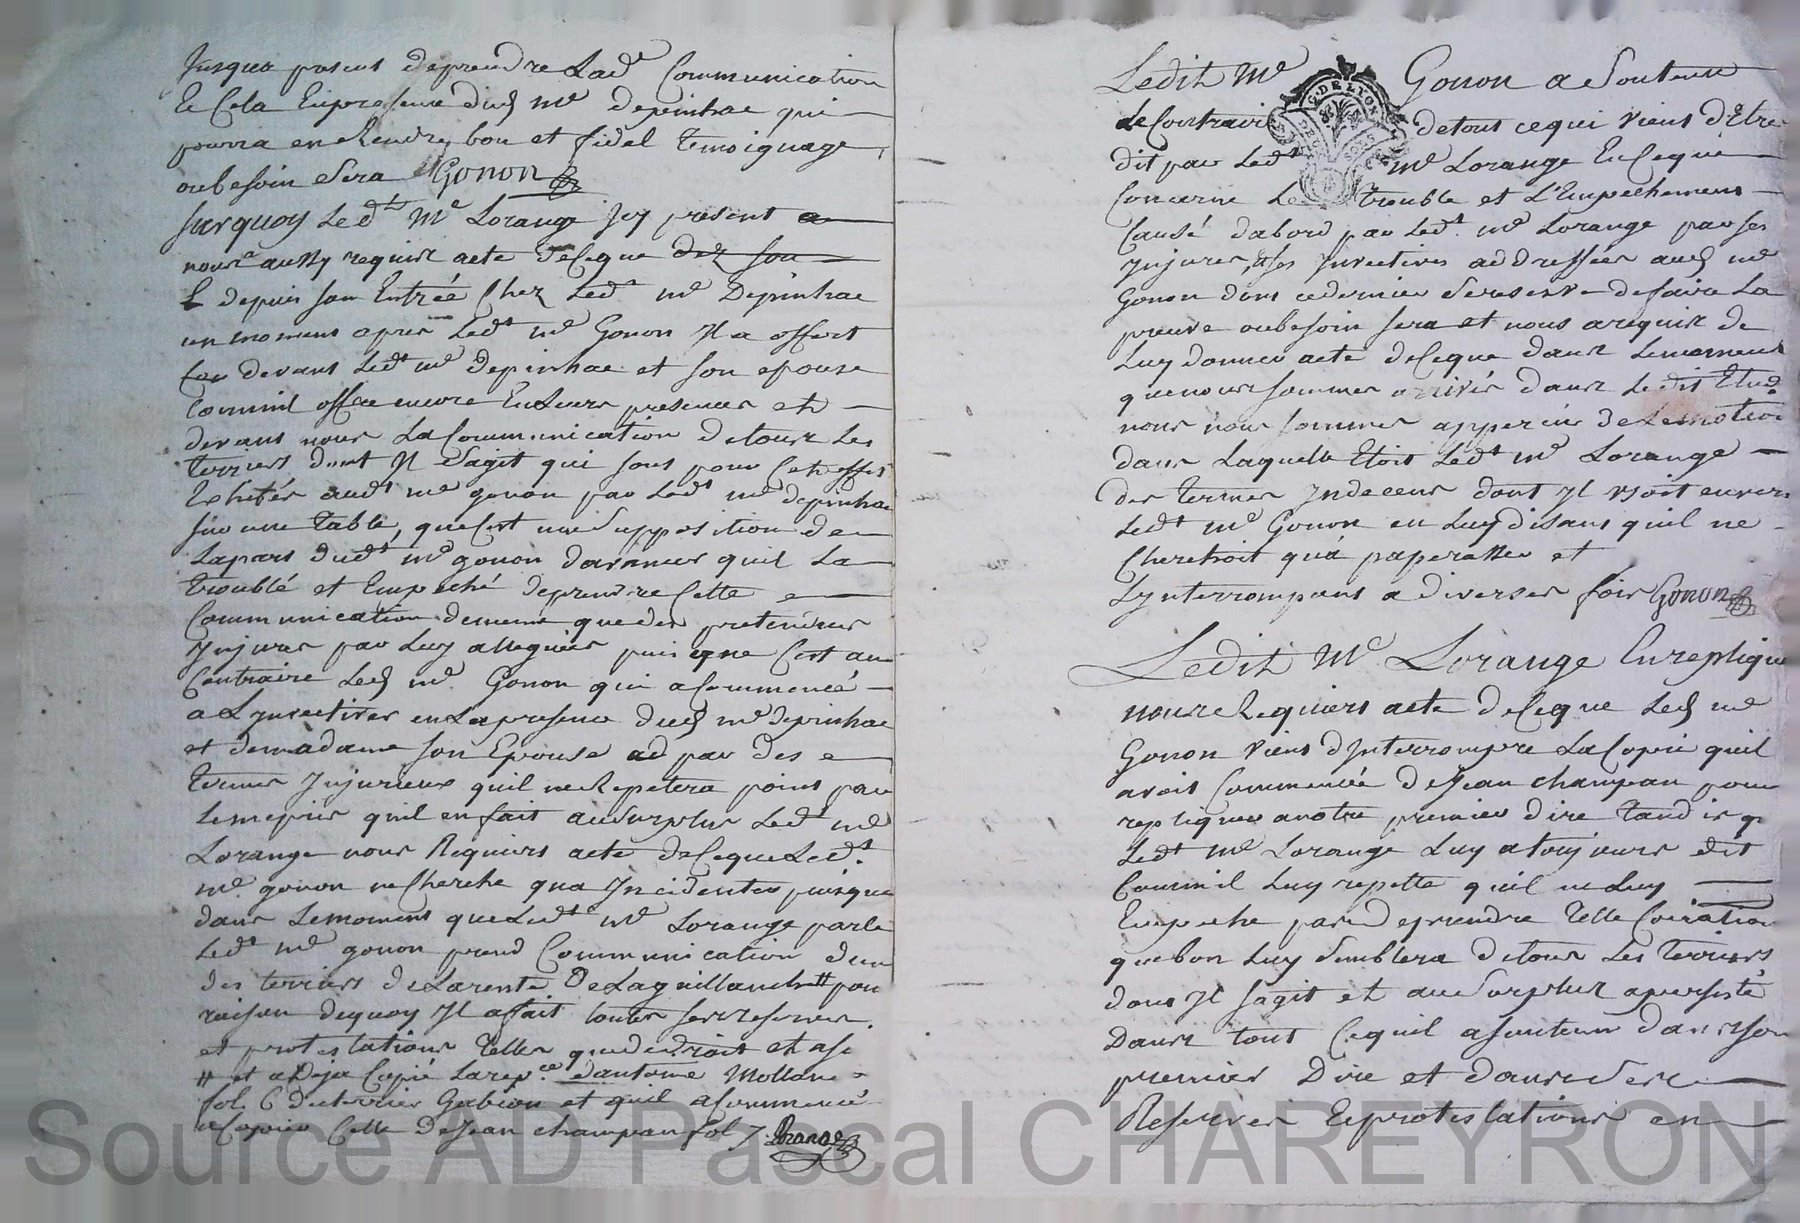 Jusqua present deprendre Lad.e Communication
Et Cela En presence dud. me depinhac qui
pourra en Rendre bon et fidel temoignage,
oubesoin sera Gonon
Surquoy Led.t Me Lorange Jcy present a
nous aussy requis acte deceque
depuis son Entrée Chez Led.t me Depinhac
un moment apres Led.t me Gonon Il a offert
devant Led.t me depinhac et son epouse
Comme Il offre encore En Leurs presences et
devant nous La Communication detous Les
terriers dont Il s'agit qui sont pour Cet effet
Exhibés aud.t me gonon par Led.t me depinhac
sur une table, que C'est une supposition de
Lapart dud.t me gonon davancer quil La
troublé et Empeché deprendre Cette
Communication dememe que des pretendues
Injures par Luy alleguées puisque C'est au
Contraire Led. me Gonon qui a Commencé
a L'Invectiver en La presence dud. me depinhac
et demadame son Epouse par des
termes Injurieux quil ne Repetera point par
Lemepris quil en fait au surplus Led.t me
Lorange nous Requiert acte de Ceque Led.t
me gonon ne Cherche qua Incidenter puisque
dans Lemoment que Led.t me Lorange parle
Led.t me gonon prend Communication dun
des terriers de Larente De Laguillanche # pour
raison dequoy Il a fait toutes ses reserves
et protestations telles que de droit et a
# et a Deja Copié Larep.ce d'antoine Mollon
fol. 6 du terrier Gabion et quil a Commencé
a Copier Celle de Jean champean fol 7 Lorange
Ledit Me Gonon a soutenu
le Contraire detout cequi vient D'Etre
dit par Led.t me Lorange En Ceque
Concerne Le trouble et L'Empechement
Causé dabord par Led.t me Lorange par ses
Injures, & ses Invectives addressées aud. me
Gonon dont cedernier se reserve de faire La
preuve oubesoin sera et nous a requis de
Luy donner acte de Ceque dans Lemoment
que nous sommes arrivés dans Ledit Etude
nous nous sommes apperçu de Lemotion
dans Laquelle Etoit Led.t me Lorange
des termes Indecens dont Il usoit envers
Led.t me Gonon en Luy disant quil ne
Cherchoit qu'a paperasser et
L'Interrompant a diverses fois Gonon
Ledit Me Lorange En replique
nous Requiert acte de Ceque Led. me
Gonon vient d'Interrompre La Copie quil
avoit Commencée de Jean champean pour
repliquer a notre premier dire tandis q
Led.t me Lorange Luy a toujours dit
Comme il Luy repette quil ne Luy
Empeche pas deprendre telle
que bon Luy semblera detous Les terriers
dont Il sagit et au surplus a persisté
Dans tout Cequil a soutenu dans son
premier Dire et dans ses
Reserves Et protestations en
Source AD Pascal CHAREYRON